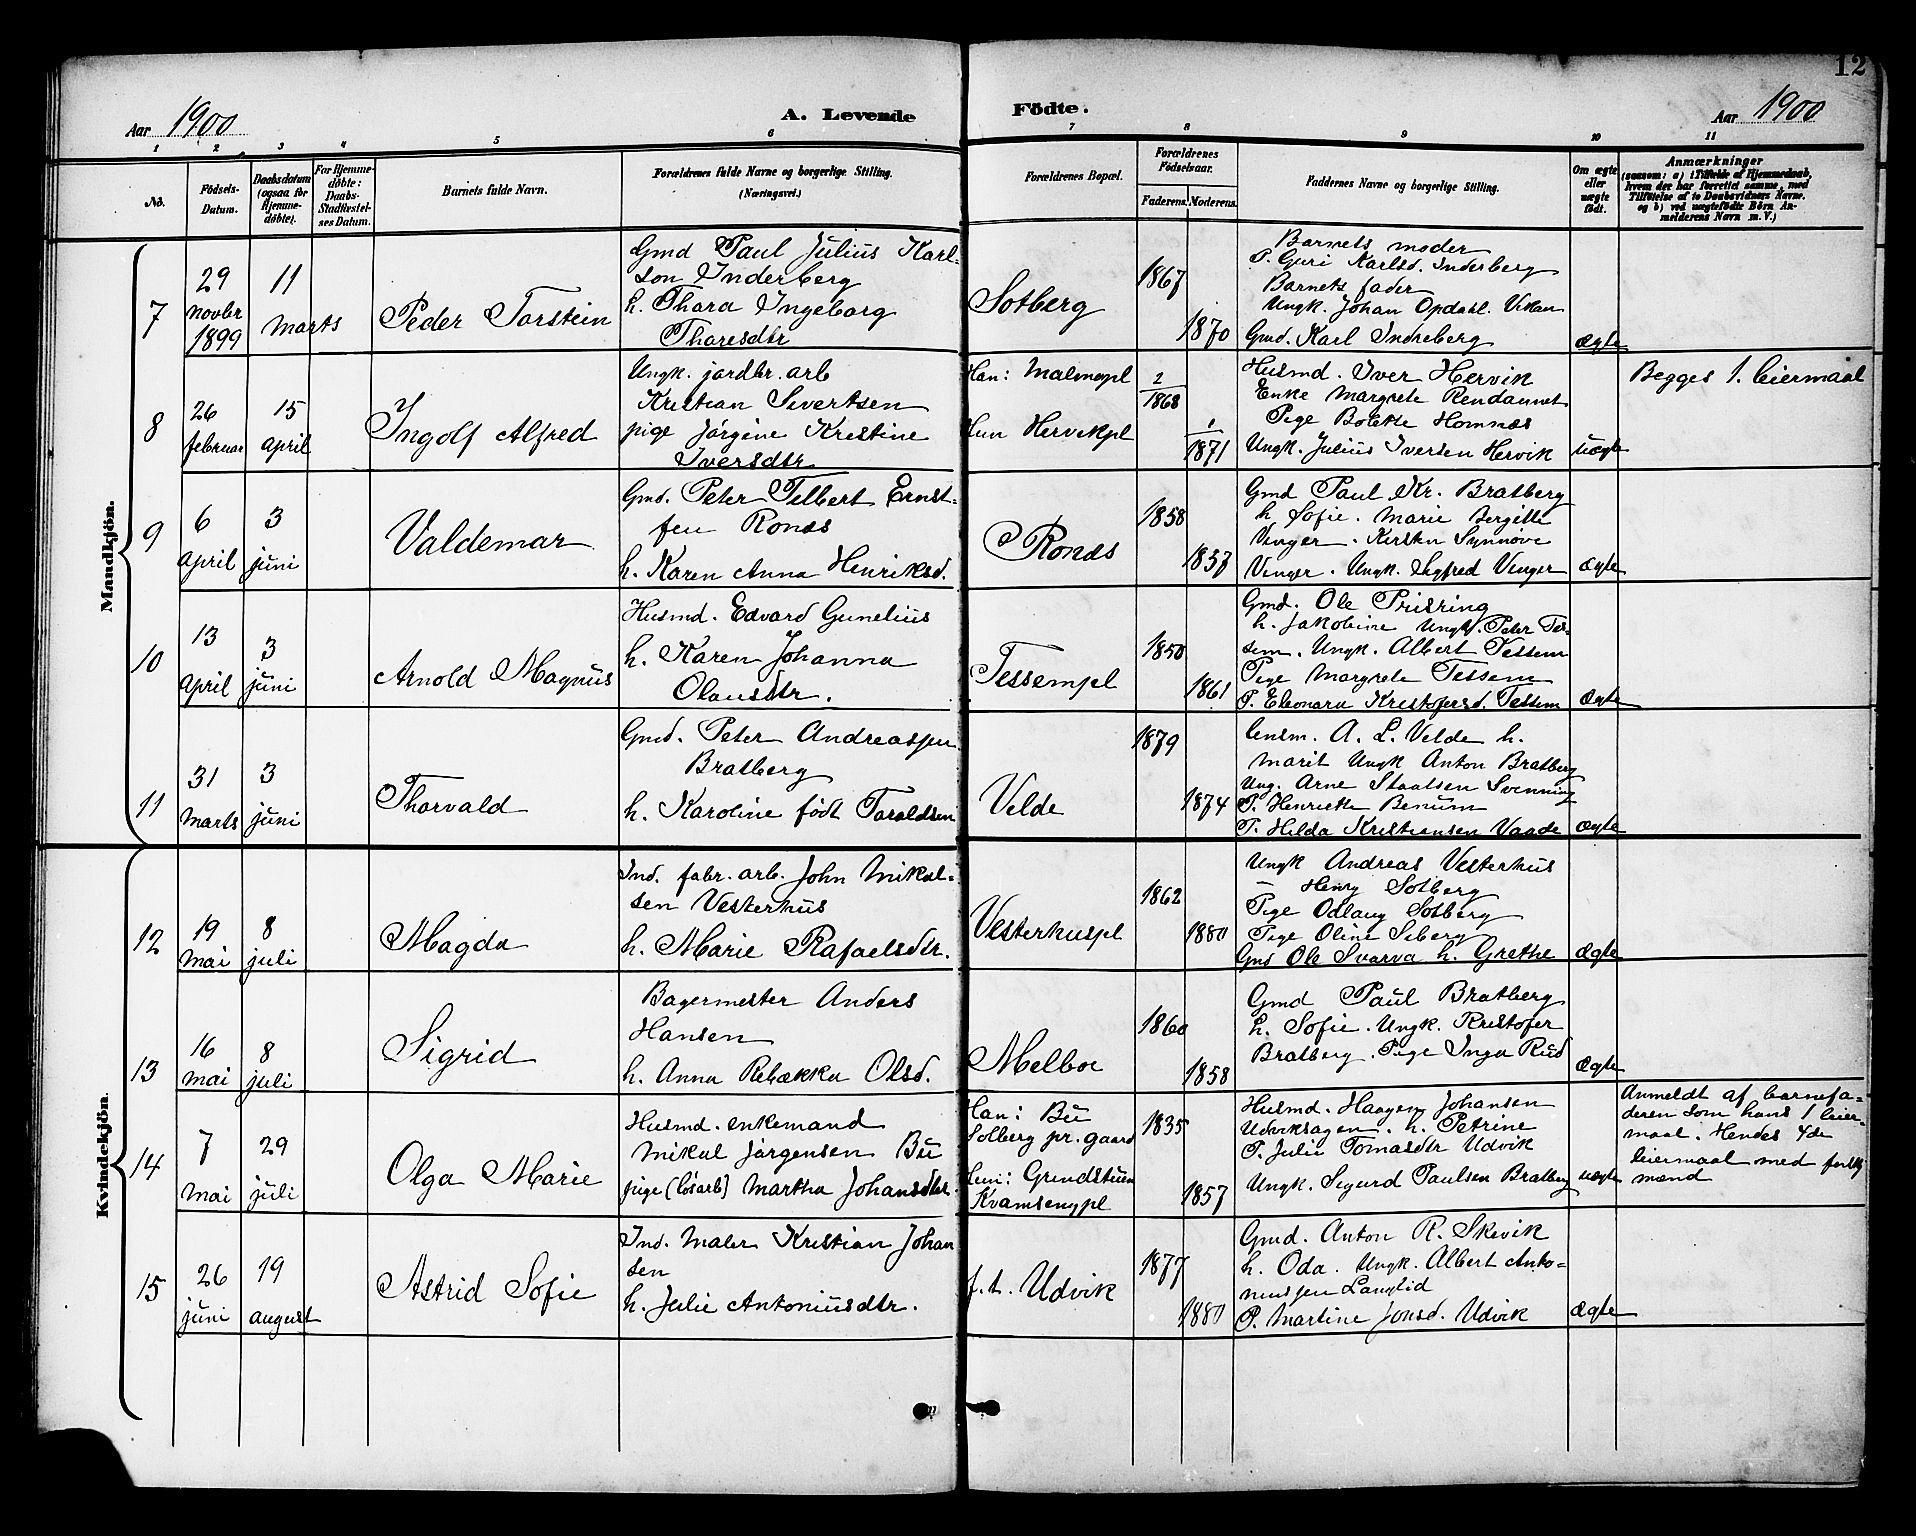 12
Aar 1900
A. Levende Födte.
Aar 1900
1 2 3 4 5 6 7 8 9 10 11
No.
Födsels-Datum.
Daabsdatum (ogsaa for Hjemmedöbte).
For Hjemmedöbte: Daabs-Stadfæstelses Datum.
Barnets fulde Navn.
Forældrenes fulde Navne og borgerlige Stilling. (Næringsvei.)
Forældrenes Bopæl.
Forældrenes Födselsaar.
Faderens. Moderens.
Faddernes Navne og borgerlige Stilling.
Om ægte eller uægte födt.
Anmærkninger
(saasom: a) i Tilfælde af Hjemmedaab, hvem der har forrettet samme, med Tilföielse af to Daabsvidners Navne, og b) ved uægtefödte Börn Anmelderens Navn m. V.)
Mandkjön.
7
29 novbr 1899
11 marts
Peder Torstein
Gmd Paul Julius Karl-
son Inderberg
h. Thora Ingeborg
Tharesdtr
Solberg
1867
1870
Barnets moder
P. Guri Karlsd. Inderberg
Barnets fader
Ungk. Johan Opdahl. Vikan
Gmd. Karl Indreberg
ægte
8
26 februar
15 april
Ingolf Alfred
Ungk. jordbr. arb
Kristian Sivertsen
pige Jörgine Kristine
Iversdtr
Han: Malmopl
Hun Hervikpl
2/1868
1/1871
Husmd. Iver Hervik
Enke Margrete
Pige Bolette Homnæs
Ungk. Julius Iversen Hervik
uægte
Begges 1. leiermaal
9
6 april
3 juni
Valdemar
Gmd. Peter Telbert Ernst-
sen Ronæs
h. Karen Anna Henriksd.
Ronæs
1858
1857
Gmd Paul Kr. Bratberg
h Sofie. Marie Bergitte
Vinger. Kirsten Synnöve
Vinger. Ungk. Sigfred Vinger
ægte
10
13 april
3 juni
Arnold Magnus
Husmd. Edvard Gunelius
h. Karen Johanna
Olausdtr.
Tessempl
1850
1861
Gmd. Ole Prisring
h. Jakobine Ungk. Peter Tes-
sem. Ungk. Albert Tessem
Pige Margrete Tessem
P. Eleonora Kristofersd. Tessem
ægte
11
31 marts
3 juni
Thorvald
Gmd. Peter Andreassen
Bratberg
h. Karoline födt Taraldsen
Velde
1879
1874
Lensm. A. L. Velde h.
Marit Ungk Anton Bratberg
Ung. Arne Staalsen Svenning
P. Henriette Benum
P. Hilda Kristiansen Vaade
ægte
Kvindekjön.
12
19 mai
8 juli
Magda
Ind. fabr. arb. John Mikal-
sen Vesterhus
h. Marie Rafaelsdtr.
Vesterhuspl
1862
1880
Ungk Andreas Vesterhus
— Henry Solberg
Pige Odlaug Solberg
Pige Oline Siberg
Gmd Ole Svarva h. Grethe
ægte
13
16 mai
8 juli
Sigrid
Bagermester Anders
Hansen
h. Anna Rebækka Olsd.
Melboe
1860
1858
Gmd Paul Bratberg
h. Sofie. Ungk. Kristofer
Bratberg. Pige Inga Rud
ægte
14
7 mai
29 juli
Olga Marie
Husmd. enkemand
Mikal Jörgensen Bü
pige (lösarb) Martha Johansdtr.
Han: Bü
Solberg pr. gaard
Hun: Grundstuen
Kvamsenypl
1835
1857
Husmd. Haagen Johansen
Udviksagen. h. Petrine
P. Julie Tomasdtr Udvik
Ungk. Sigurd Paulsen Bratberg
uægte
Anmeldt af barnefa-
deren som hans 1 leier-
maal. Hendes 4de
leiermaal med forskj
mænd
15
26 juni
19 august
Astrid Sofie
Ind. Maler Kristian Johan
sen
h. Julie Antoniusdtr.
f.t. Udvik
1877
1880
Gmd. Anton R. Skevik
h. Oda. Ungk. Albert Anto-
niussen Langlid
P. Martine Jonsd. Udvik
ægte